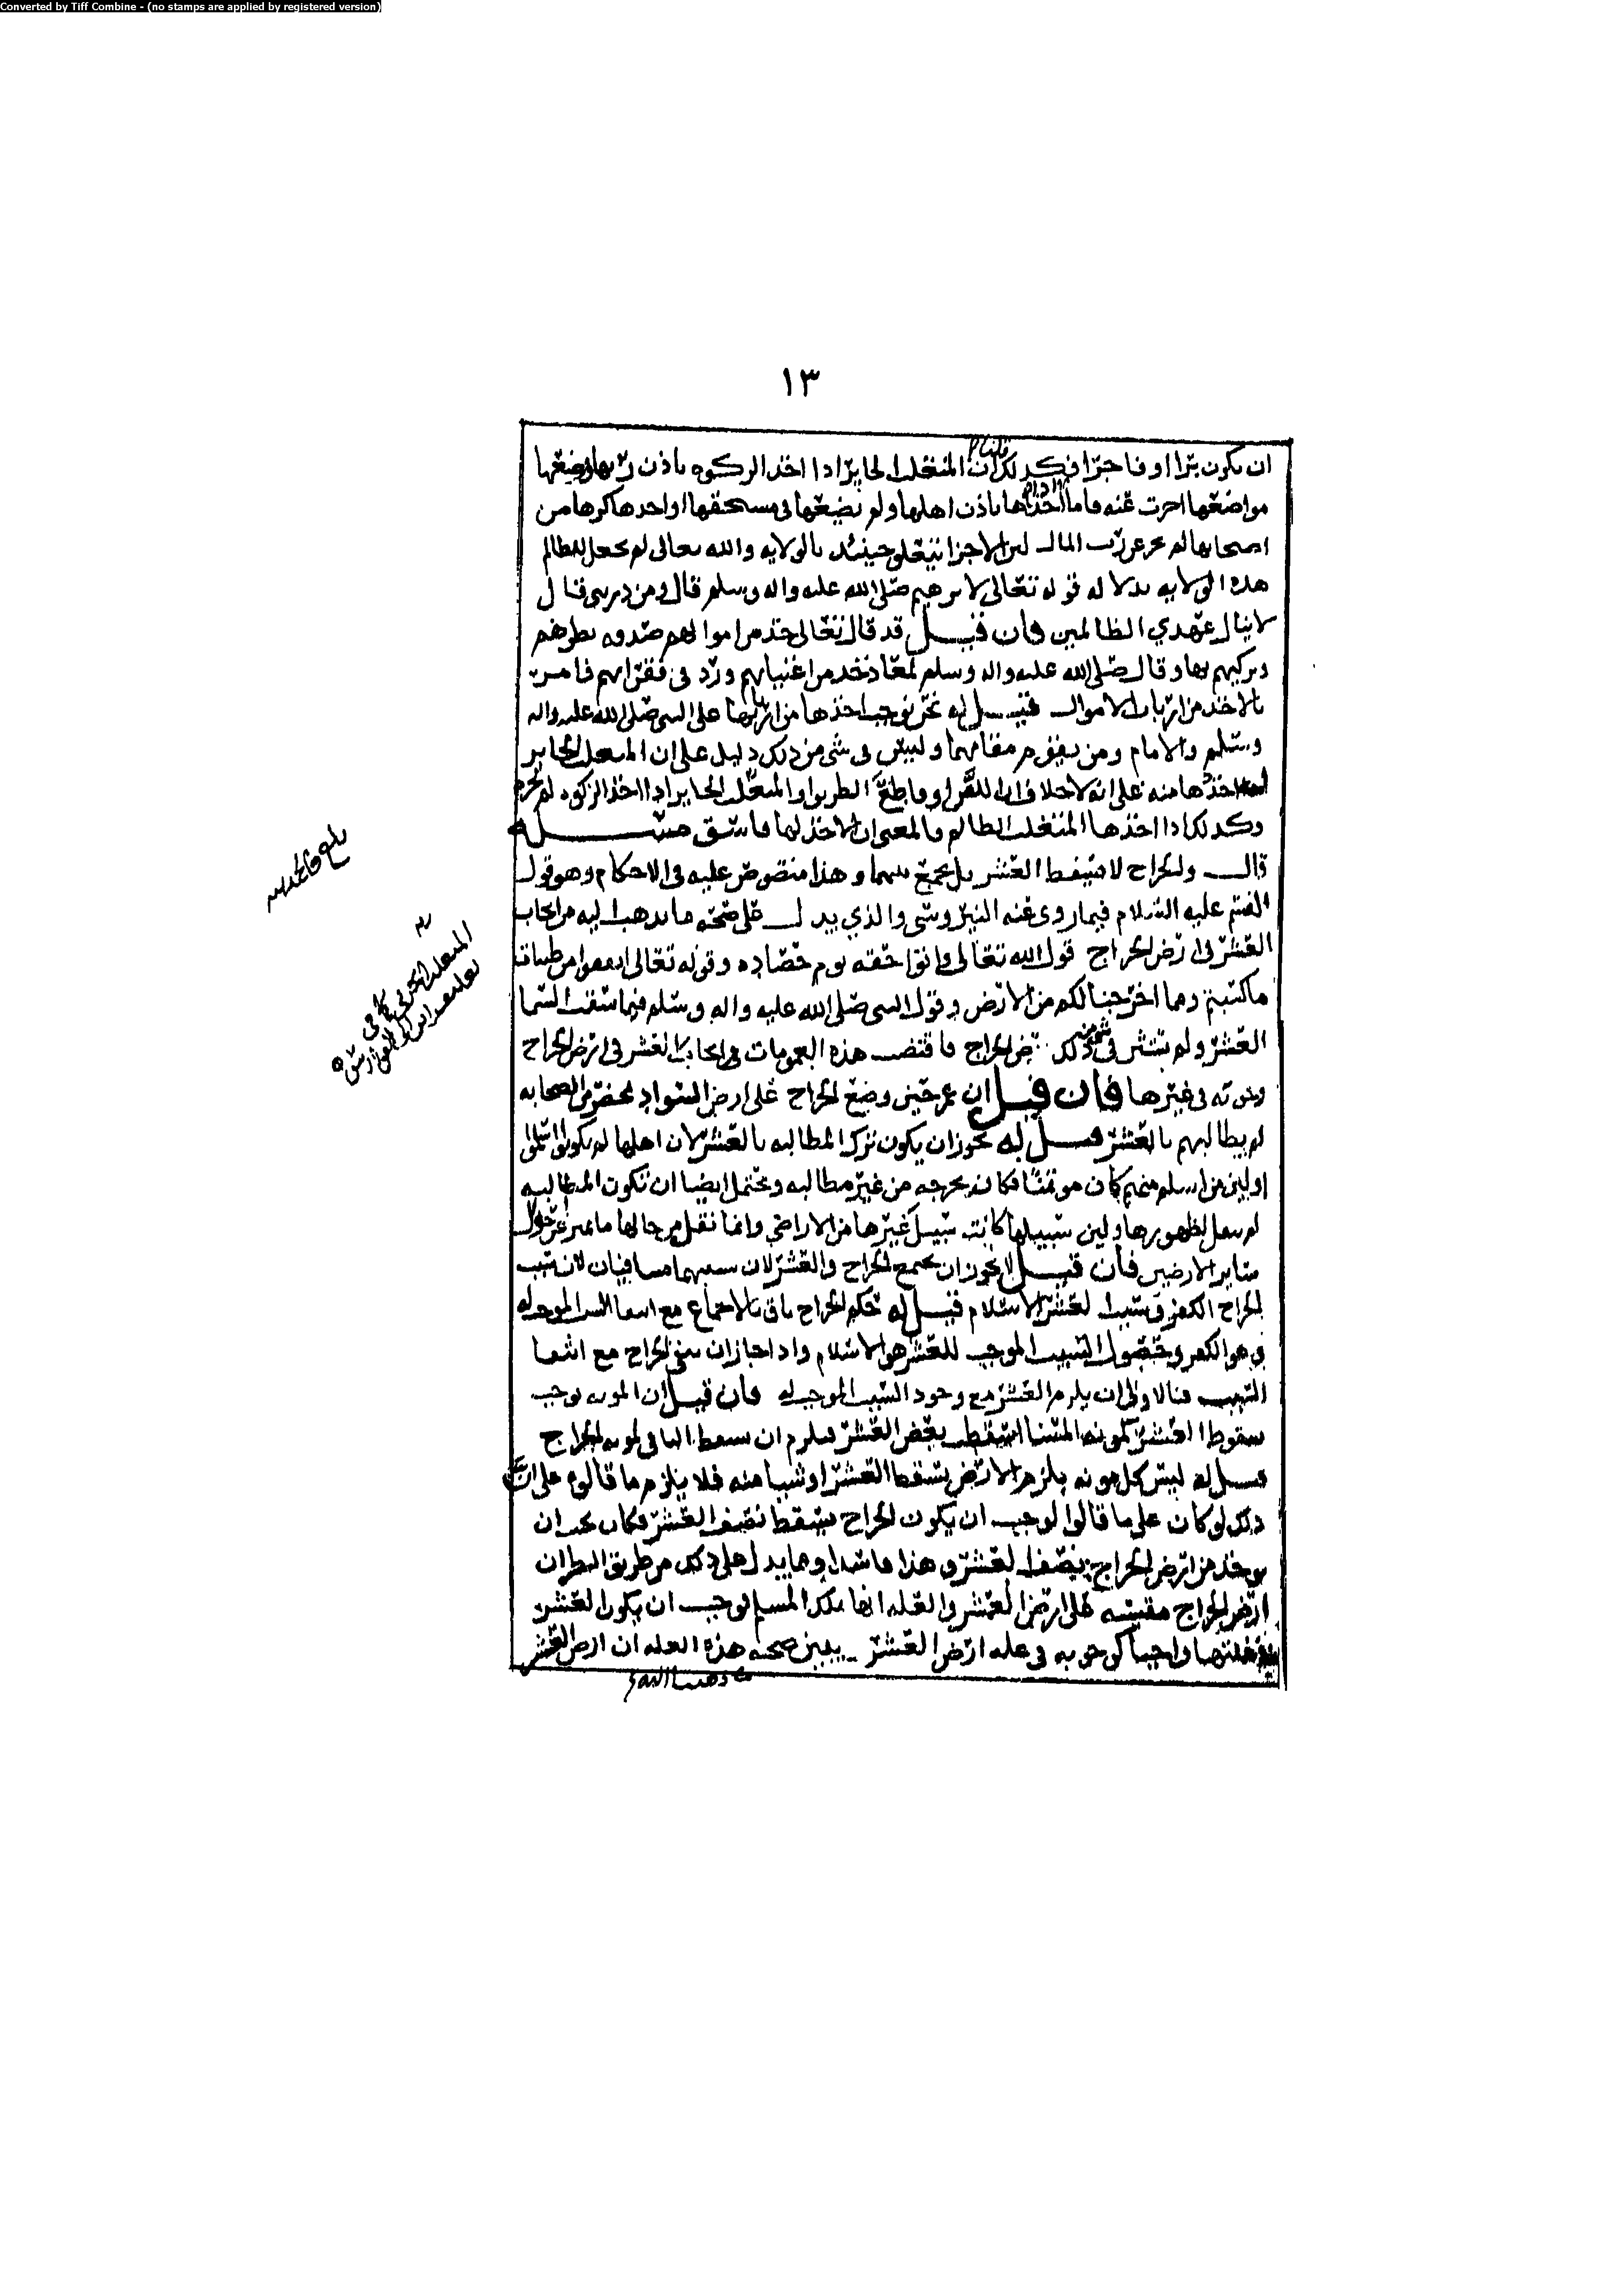 Converted by Tiff Combine - (no stamps are applied by registered version)
١٣
ان يكون برا او فاجرا فكذلك ان المتغلب الجاير اذا اخذ الزكوه باذن ربها وضعها
مواضعها اجزت عنه فاما اذا اخذها باذن اهلها ولم يضعها في مستحقها او اخذها كرها من
اصحابها لم يجز عن رب المال لان الاجزا يتعلق حينئذ بالولايه والله تعالى لم يجعل للظالم
هذه الولايه بدلاله قوله تعالى لابرهيم صلى الله عليه واله وسلم قال ومن ذريتي قال
لا ينال عهدي الظالمين فان قيل قد قال تعالى خذ من اموالهم صدقه تطهرهم
وتزكيهم بها وقال صلى الله عليه واله وسلم لمعاذ خذ من اغنيايهم ورد في فقرايهم فامر
بالاخذ من ارباب الاموال قيل له نحن نوجب اخذها من اربابها على النبي صلى الله عليه واله
وسلم والامام ومن يقوم مقامهما وليس في شي من ذلك دليل على ان المتغلب الجاير
اخذها منه على انه لا خلاف ان اللص وقاطع الطريق او المتغلب الجاير اذا اخذ الزكوه لم يجز
وكذلك اذا اخذها المتغلب الظالم والمعنى ان الاخذ لها فاسق مسئله
قال والخراج لا يسقط العشر بل يجمع بينهما وهذا منصوص عليه في الاحكام وهو قول
القسم عليه السلام فيما روى عنه النيروسي والذي يدل على صحه ما نذهب اليه من ايجاب
العشر في ارض الخراج قول الله تعالى واتوا حقه يوم حصاده وقوله تعالى انفقوا من طيبات
ما كسبتم ومما اخرجنا لكم من الارض وقول النبي صلى الله عليه واله وسلم فيما سقت السما
العشر ولم يستثن في شي من ذلك ارض الخراج فاقتضت هذه العمومات في ايجاب العشر في ارض الخراج
وجوبه في غيرها فان قيل ان عمر حين وضع الخراج على ارض السواد بمحضر من الصحابه
لم يطالبهم بالعشر قيل له يجوز ان يكون ترك المطالبه بالعشر لان اهلها لم يكونوا اسلموا
او لان من اسلم منهم كان موتمنا فكان يخرجه من غير مطالبه ويحتمل ايضا ان تكون المطالبه
لم تنقل لظهورها ولان سبيلها كانت سبيل غيرها من الاراضي وانما نقل من حالها ما تميز عن حال
ساير الارضين فان قيل لا يجوز ان يجتمع الخراج والعشر لان سببهما متنافيان لان سبب
الخراج الكفر وسبب العشر الاسلام قيل له حكم الخراج باق بالاجماع مع انتفا السبب الموجب له
وهو الكفر وحصول السبب الموجب للعشر هو الاسلام واذا جاز ان يبقى الخراج مع انتفا
السبب فالاولى ان يلزم العشر مع وجود السبب الموجب له فان قيل ان المونه توجب
سقوط العشر كمونه السنا اسقطت بعض العشر فيلزم ان يسقط الباقي لمونه الخراج
قيل له ليس كل مونه يلزم الارض يسقط العشر او شيا منه فلا يلزم ما قالوه على ان
ذلك لو كان على ما قالوا لوجب ان يكون الخراج يسقط نصف العشر فكان يجب ان
يوخذ من ارض الخراج نصف العشر وهذا فاسد ومما يدل على ذلك من طريق النظر ان
ارض الخراج مقيسه على ارض العشر والعله انها ملك المسلم فوجب ان يكون العشر
في غلتها واجبا كوجوبه في غله ارض العشر يبين صحه هذه العله ان ارض العشر